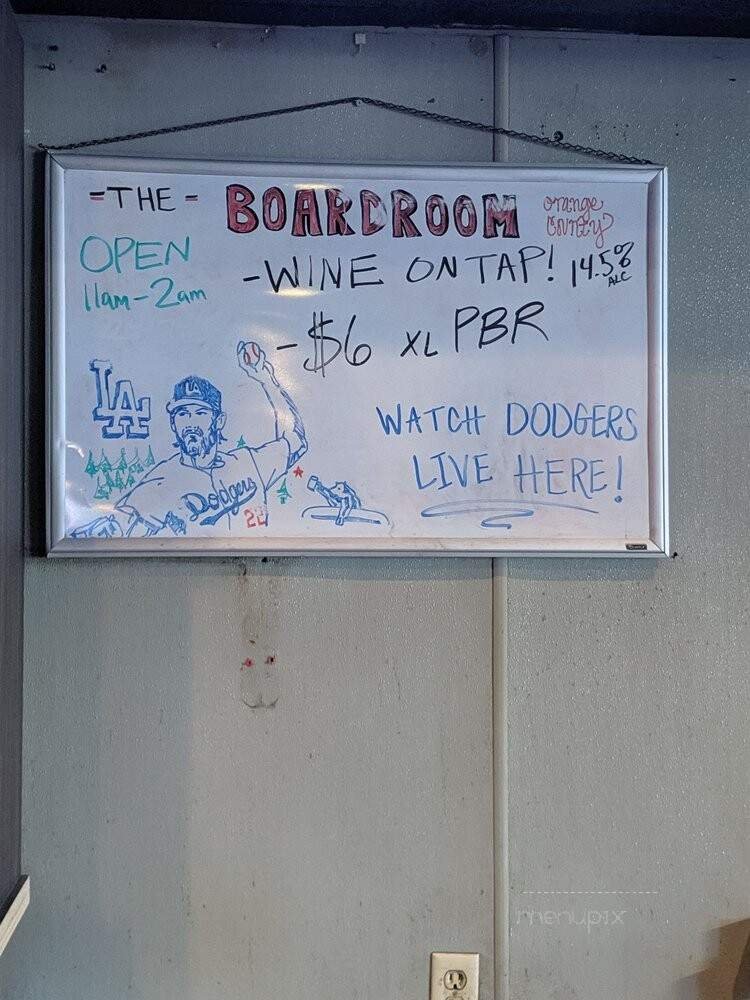 -THE- BOARDROOM orange county
OPEN
11am-2am
-WINE ON TAP! 14.5% ALC
-$6 XL PBR
LA
LA
WATCH DODGERS
LIVE HERE!
Dodgers
22
menupix